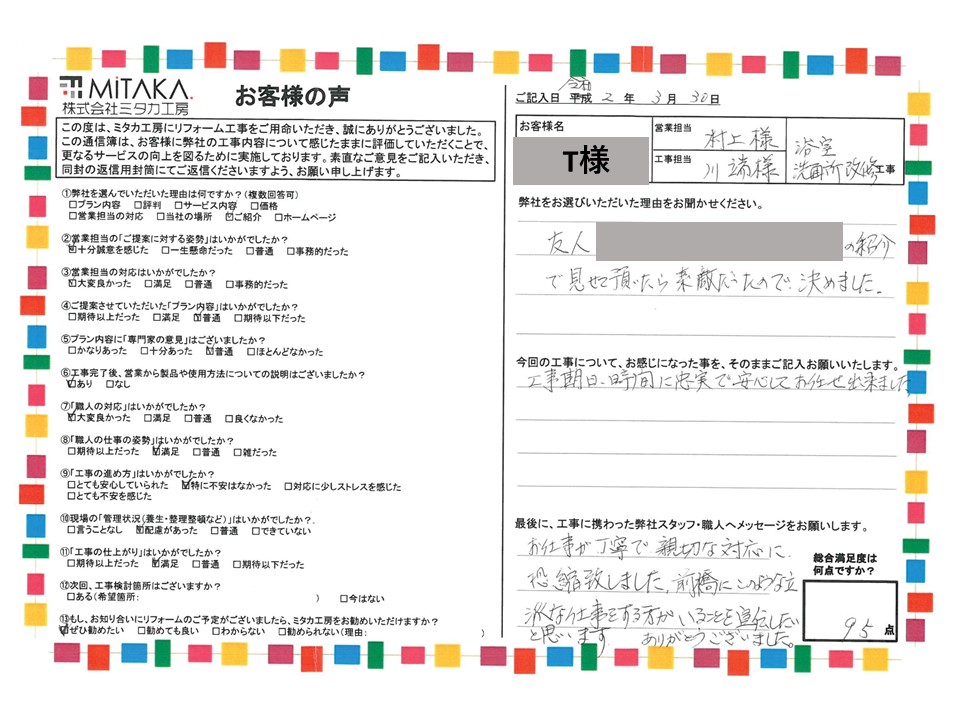 MiTAKA.
株式会社ミタカ工房
お客様の声
この度は、ミタカ工房にリフォーム工事をご用命いただき、誠にありがとうございました。
この通信簿は、お客様に弊社の工事内容について感じたままに評価していただくことで、
更なるサービスの向上を図るために実施しております。素直なご意見をご記入いただき、
同封の返信用封筒にてご返信くださいますよう、お願い申し上げます。
①弊社を選んでいただいた理由は何ですか?(複数回答可)
□プラン内容 □評判 □サービス内容 □価格
□営業担当の対応 □当社の場所 ☑ご紹介 □ホームページ
②営業担当の「ご提案に対する姿勢」はいかがでしたか?
☑十分誠意を感じた □一生懸命だった □普通 □事務的だった
③営業担当の対応はいかがでしたか?
☑大変良かった □満足 □普通 □事務的だった
④ご提案させていただいた「プラン内容」はいかがでしたか?
□期待以上だった □満足 ☑普通 □期待以下だった
⑤プラン内容に「専門家の意見」はございましたか?
□かなりあった □十分あった ☑普通 □ほとんどなかった
⑥工事完了後、営業から製品や使用方法についての説明はございましたか?
☑あり □なし
⑦「職人の対応」はいかがでしたか?
☑大変良かった □満足 □普通 □良くなかった
⑧「職人の仕事の姿勢」はいかがでしたか?
□期待以上だった ☑満足 □普通 □雑だった
⑨「工事の進め方」はいかがでしたか?
□とても安心していられた ☑特に不安はなかった □対応に少しストレスを感じた
□とても不安を感じた
⑩現場の「管理状況(養生・整理整頓など)」はいかがでしたか?
□言うことなし ☑配慮があった □普通 □できていない
⑪「工事の仕上がり」はいかがでしたか?
□期待以上だった ☑満足 □普通 □期待以下だった
⑫次回、工事検討箇所はございますか?
□ある(希望箇所: ) □今はない
⑬もし、お知り合いにリフォームのご予定がございましたら、ミタカ工房をお勧めいただけますか?
☑ぜひ勧めたい □勧めても良い □わからない □勧められない(理由: )
令和
ご記入日 平成 2 年 3 月 30 日
お客様名
T様
営業担当 村上様
工事担当 川端様
浴室
洗面所改修工事
弊社をお選びいただいた理由をお聞かせください。
友人 の紹介
で見せて頂いたら素敵だったので決めました。
今回の工事について、お感じになった事を、そのままご記入お願いいたします。
工事期日、時間に忠実で安心してお任せ出来ました
最後に、工事に携わった弊社スタッフ・職人へメッセージをお願いします。
お仕事が丁寧で親切な対応に
恐縮致しました。前橋にこのような立
派な仕事をする方がいることを宣伝したい
と思います。 ありがとうございました。
総合満足度は
何点ですか?
95点